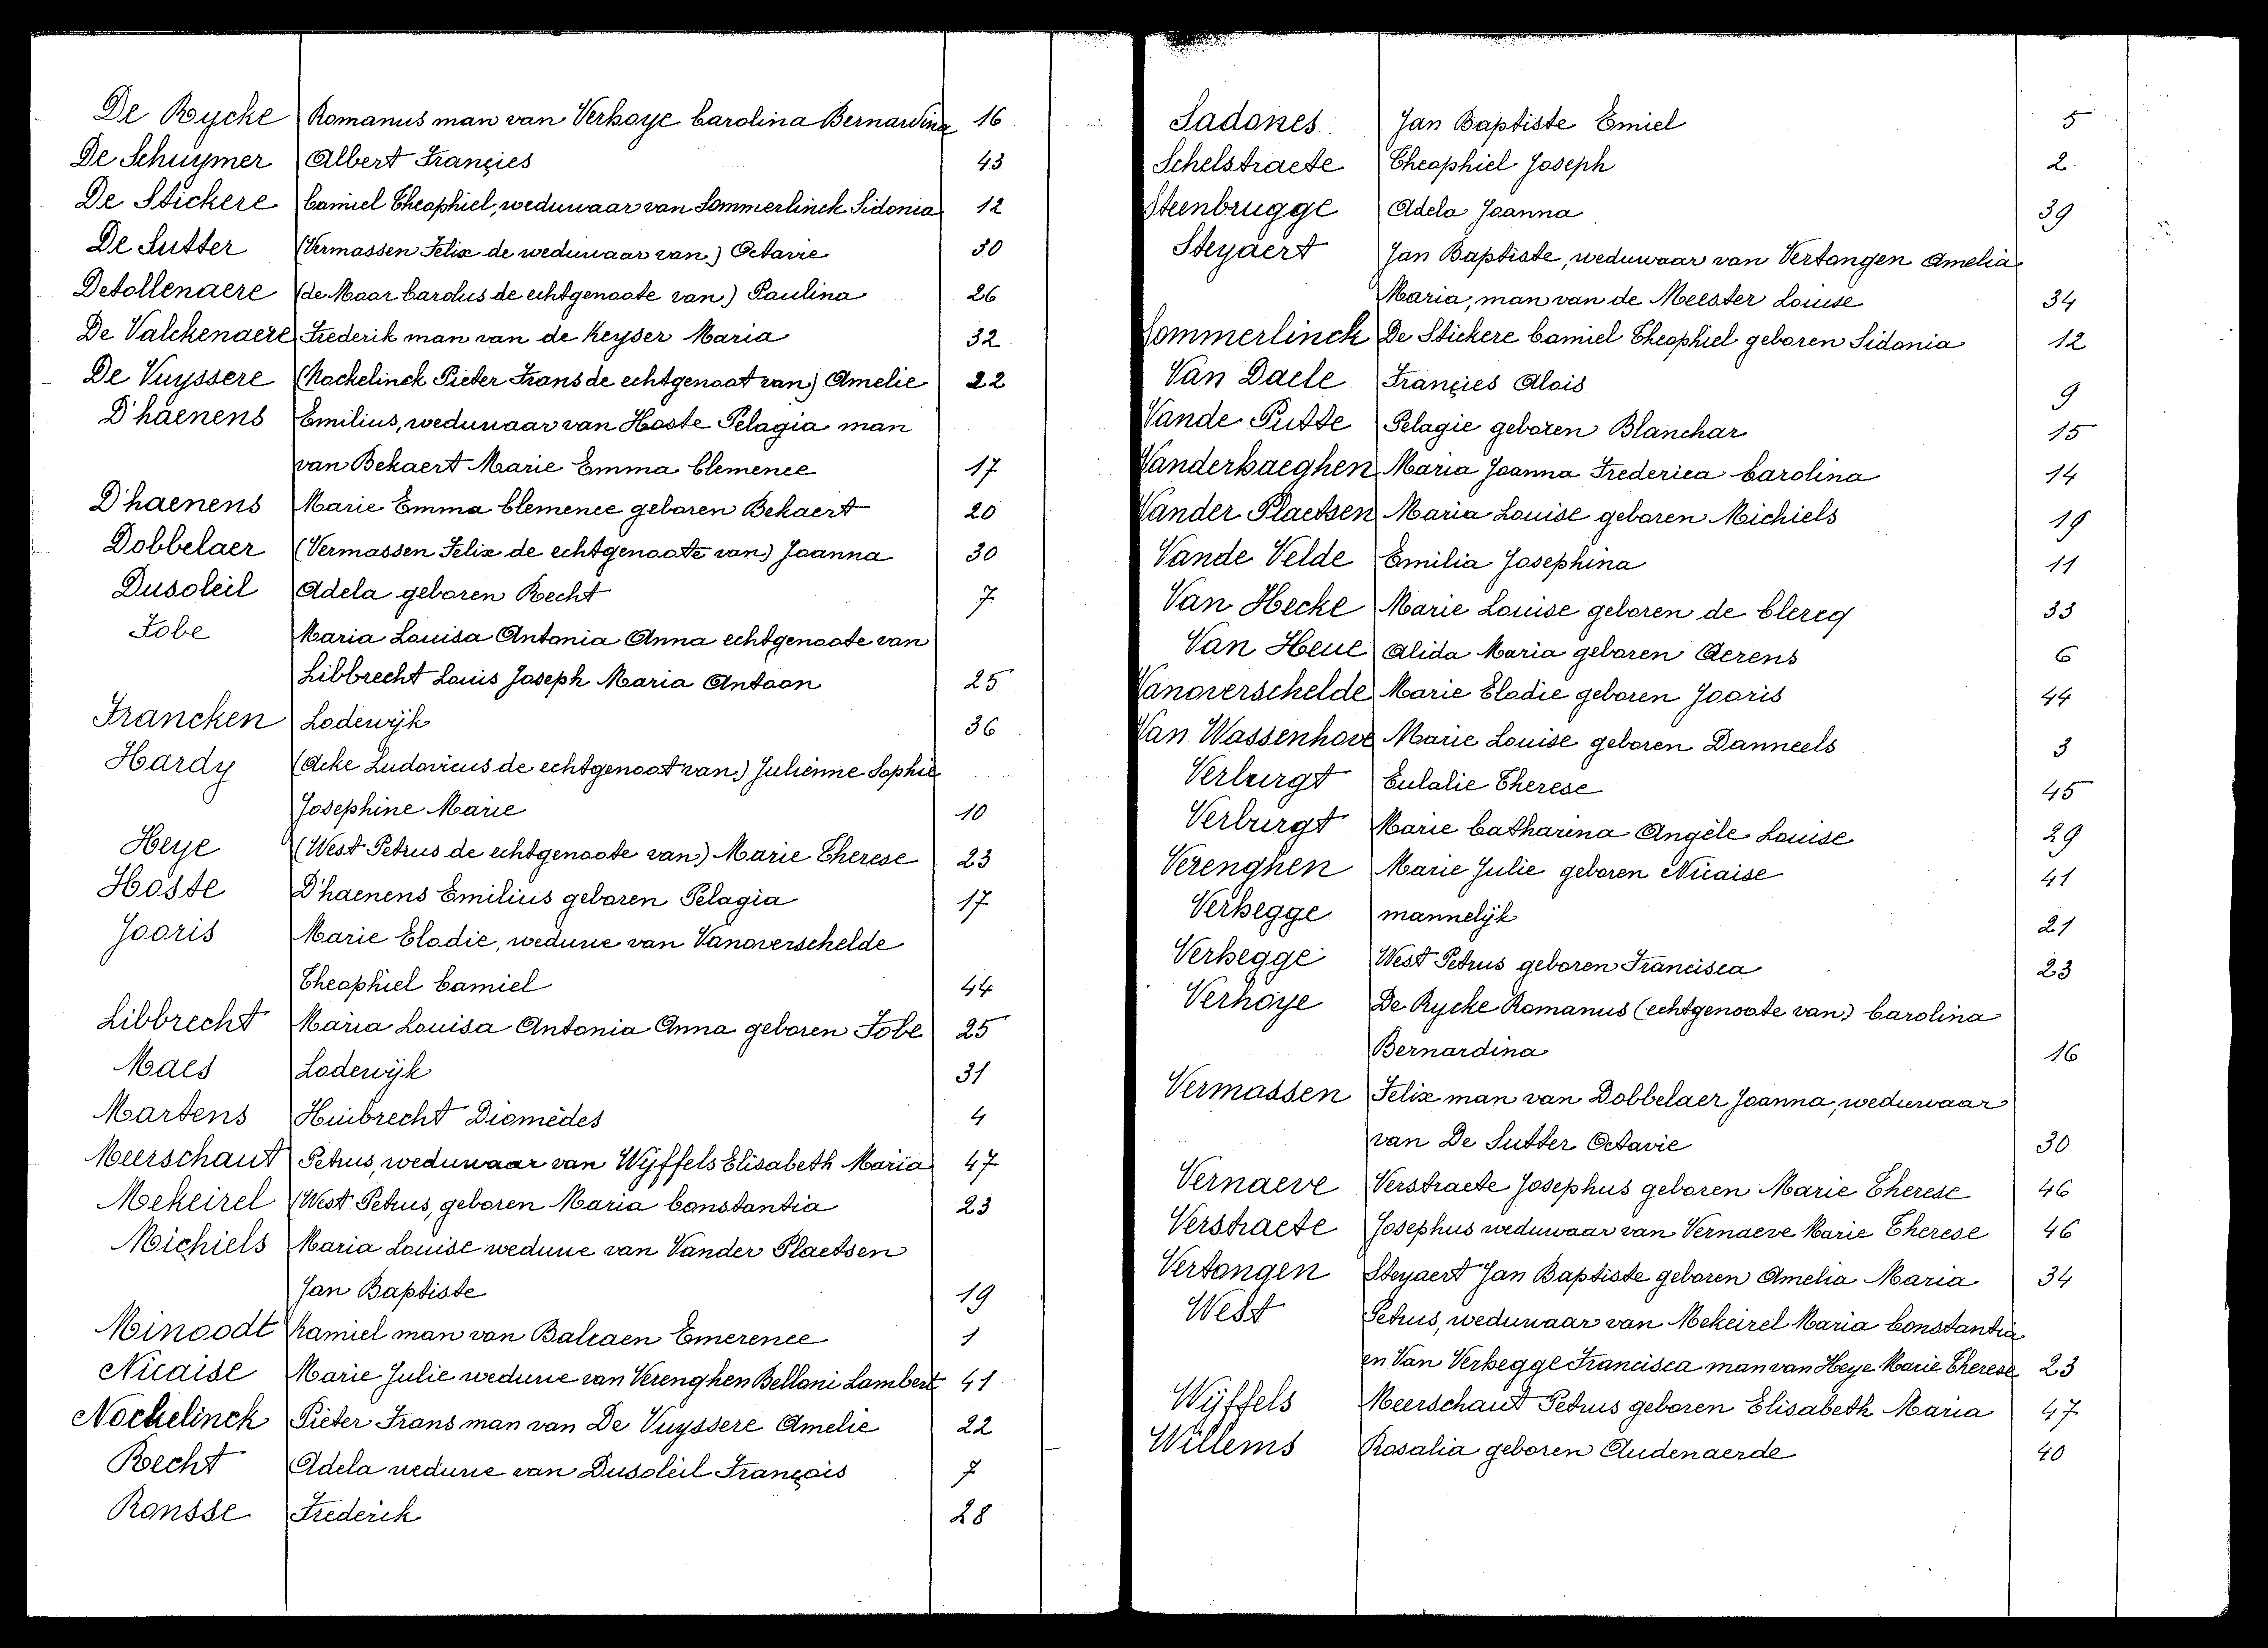 De Rycke Romanus man van Verhoye Carolina Bernardina 16
De Schuymer Albert Françies 43
De Stickere Camiel Theophiel, weduwaar van Sommerlinck Sidonia 12
De Sutter (Vermassen Felix de weduwaar van) Octavie 30
Detollenaere (de Maar Carolus de echtgenoote van) Paulina 26
De Valckenaere Frederik man van de Keyser Maria 32
De Vuyssere (Nockelinck Pieter Frans de echtgenoot van) Amelie 22
D'haenens Emilius, weduwaar van Hoste Pelagia man
van Bekaert Marie Emma Clemence 17
D'haenens Marie Emma Clemence geboren Bekaert 20
Dobbelaer (Vermassen Felix de echtgenoote van) Joanna 30
Dusoleil Adela geboren Recht 7
Fobe Maria Louisa Antonia Anna echtgenoote van
Libbrecht Louis Joseph Maria Antoon 25
Francken Lodewijk 36
Hardy (Acke Ludovicus de echtgenoot van) Julienne Sophie
Josephine Marie 10
Heye (West Petrus de echtgenoote van) Marie Therese 23
Hoste D'haenens Emilius geboren Pelagia 17
Jooris Marie Elodie, weduwe van Vanoverschelde
Theophiel Camiel 44
Libbrecht Maria Louisa Antonia Anna geboren Fobe 25
Maes Lodewijk 31
Martens Huibrecht Diomèdes 4
Meerschaut Petrus, weduwaar van Wijffels Elisabeth Maria 47
Mekeirel (West Petrus, geboren Maria Constantia 23
Michiels Maria Louise weduwe van Vander Plaetsen
Jan Baptiste 19
Minoodt Kamiel man van Balcaen Emerence 1
Nicaise Marie Julie weduwe van Verenghen Belloni Lambert 41
Nockelinck Pieter Frans man van De Vuyssere Amelie 22
Recht Adela weduwe van Dusoleil François 7
Ronsse Frederik 28
Sadones Jan Baptiste Emiel 5
Schelstraete Theophiel Joseph 2
Steenbrugge Adela Joanna 39
Steyaert Jan Baptiste, weduwaar van Vertongen Amelia
Maria, man van de Meester Louise 34
Sommerlinck De Stickere Camiel Theophiel geboren Sidonia 12
Van Daele Françies Alois 9
Vande Putte Pelagie geboren Blanchar 15
Vanderhaeghen Maria Joanna Frederica Carolina 14
Vander Plaetsen Maria Louise geboren Michiels 19
Vande Velde Emilia Josephina 11
Van Hecke Marie Louise geboren de Clercq 33
Van Heue Alida Maria geboren Aerens 6
Vanoverschelde Marie Elodie geboren Jooris 44
Van Wassenhove Marie Louise geboren Danneels 3
Verburgt Eulalie Therese 45
Verburgt Marie Catharina Angèle Louise 29
Verenghen Marie Julie geboren Nicaise 41
Verhegge mannelijk 21
Verhegge West Petrus geboren Francisca 23
Verhoye De Rycke Romanus (echtgenoote van) Carolina
Bernardina 16
Vermassen Felix man van Dobbelaer Joanna, weduwaar
van De Sutter Octavie 30
Vernaeve Verstraete Josephus geboren Marie Therese 46
Verstraete Josephus weduwaar van Vernaeve Marie Therese 46
Vertongen Steyaert Jan Baptiste geboren Amelia Maria 34
West Petrus, weduwaar van Mekeirel Maria Constantia
en Van Verhegge Francisca man van Heye Marie Therese 23
Wijffels Meerschaut Petrus geboren Elisabeth Maria 47
Willems Rosalia geboren Audenaerde 40